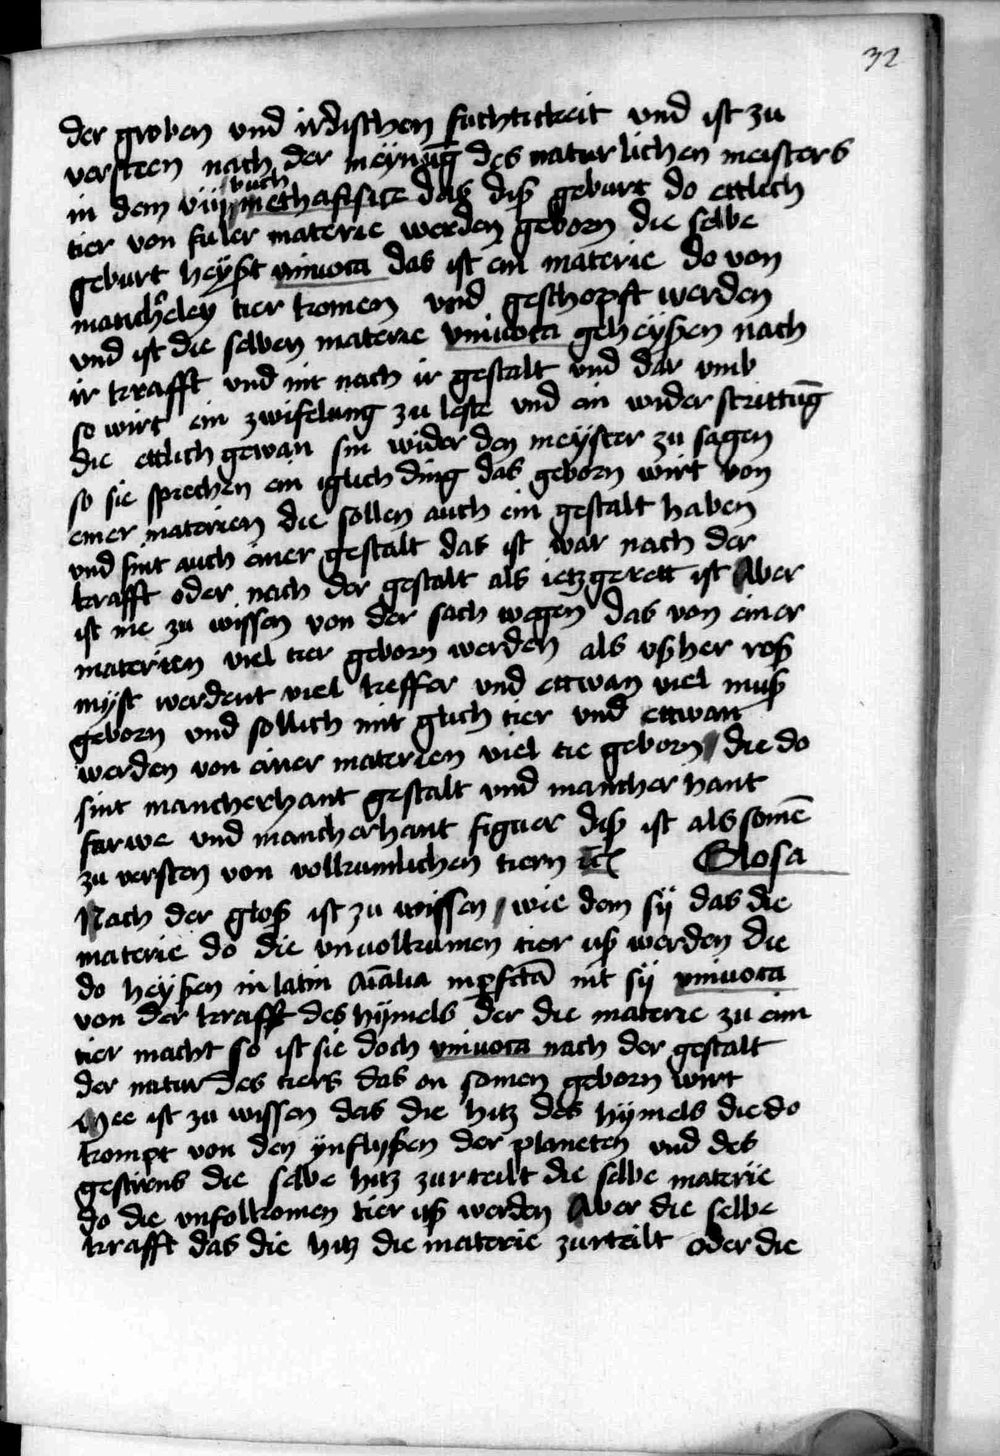 32
der groben vnd irdischen fuchtickeit vnd ist zu
versteen nach der meynu͞g des naturlichen meisters
buch
in dem viij methafisice das diß geburt do ettlich
tier von fuler materie werden geborn die selbe
geburt heyßt vniuoca das ist ein materie do von
mancherley tier komen vnd geschopft werden
vnd ist die selben materie vniuoca geheyßen nach
ir krafft vnd nit nach ir gestalt vnd dar vmb
so wirt ein zwifelung zu leste vnd ein wider strittu͞g
die ettlich gewan sin wider den meyster zu sagen
so sie sprechen ein iglich ding das geborn wirt von
einer materien die sollen auch ein gestalt haben
vnd sint auch einer gestalt das ist war nach der
krafft oder nach der gestalt als ietz gerett ist Aber
ist me zu wissen von der sach wegen das von einer
materien viel tier geborn werden als vßher roß
myst werdent viel keffer vnd ettwan viel muß
geborn vnd sollich nit glich tier vnd ettwan
werden von einer materien viel tie geborn die do
sint mancherhant gestalt vnd mancher hant
farwe vnd mancherhant figuer diß ist als some͞
zu versten von vollkumlichen tiern etc Glosa
Nach der gloß ist zu wissen wie dem sÿ das die
materie do die vnuolkumen tier uß werden die
do heyßen in latin a͞i͞alia inp̱fcta͞ nit sÿ vniuoca
von der krafft des hÿmels der die materie zu eim
tier macht so ist sie doch vniuoca nach der gestalt
der natur des tiers das on somen geborn wirt
Mee ist zu wissen das die hitz des hÿmels die do
kompt von den ÿnflyßen der planeten vnd des
gestirns die selbe hitz zurteilt die selbe materie
do die vnfolkomen tier uß werden Aber die selbe
krafft das die hitz die materie zurteilt oder die